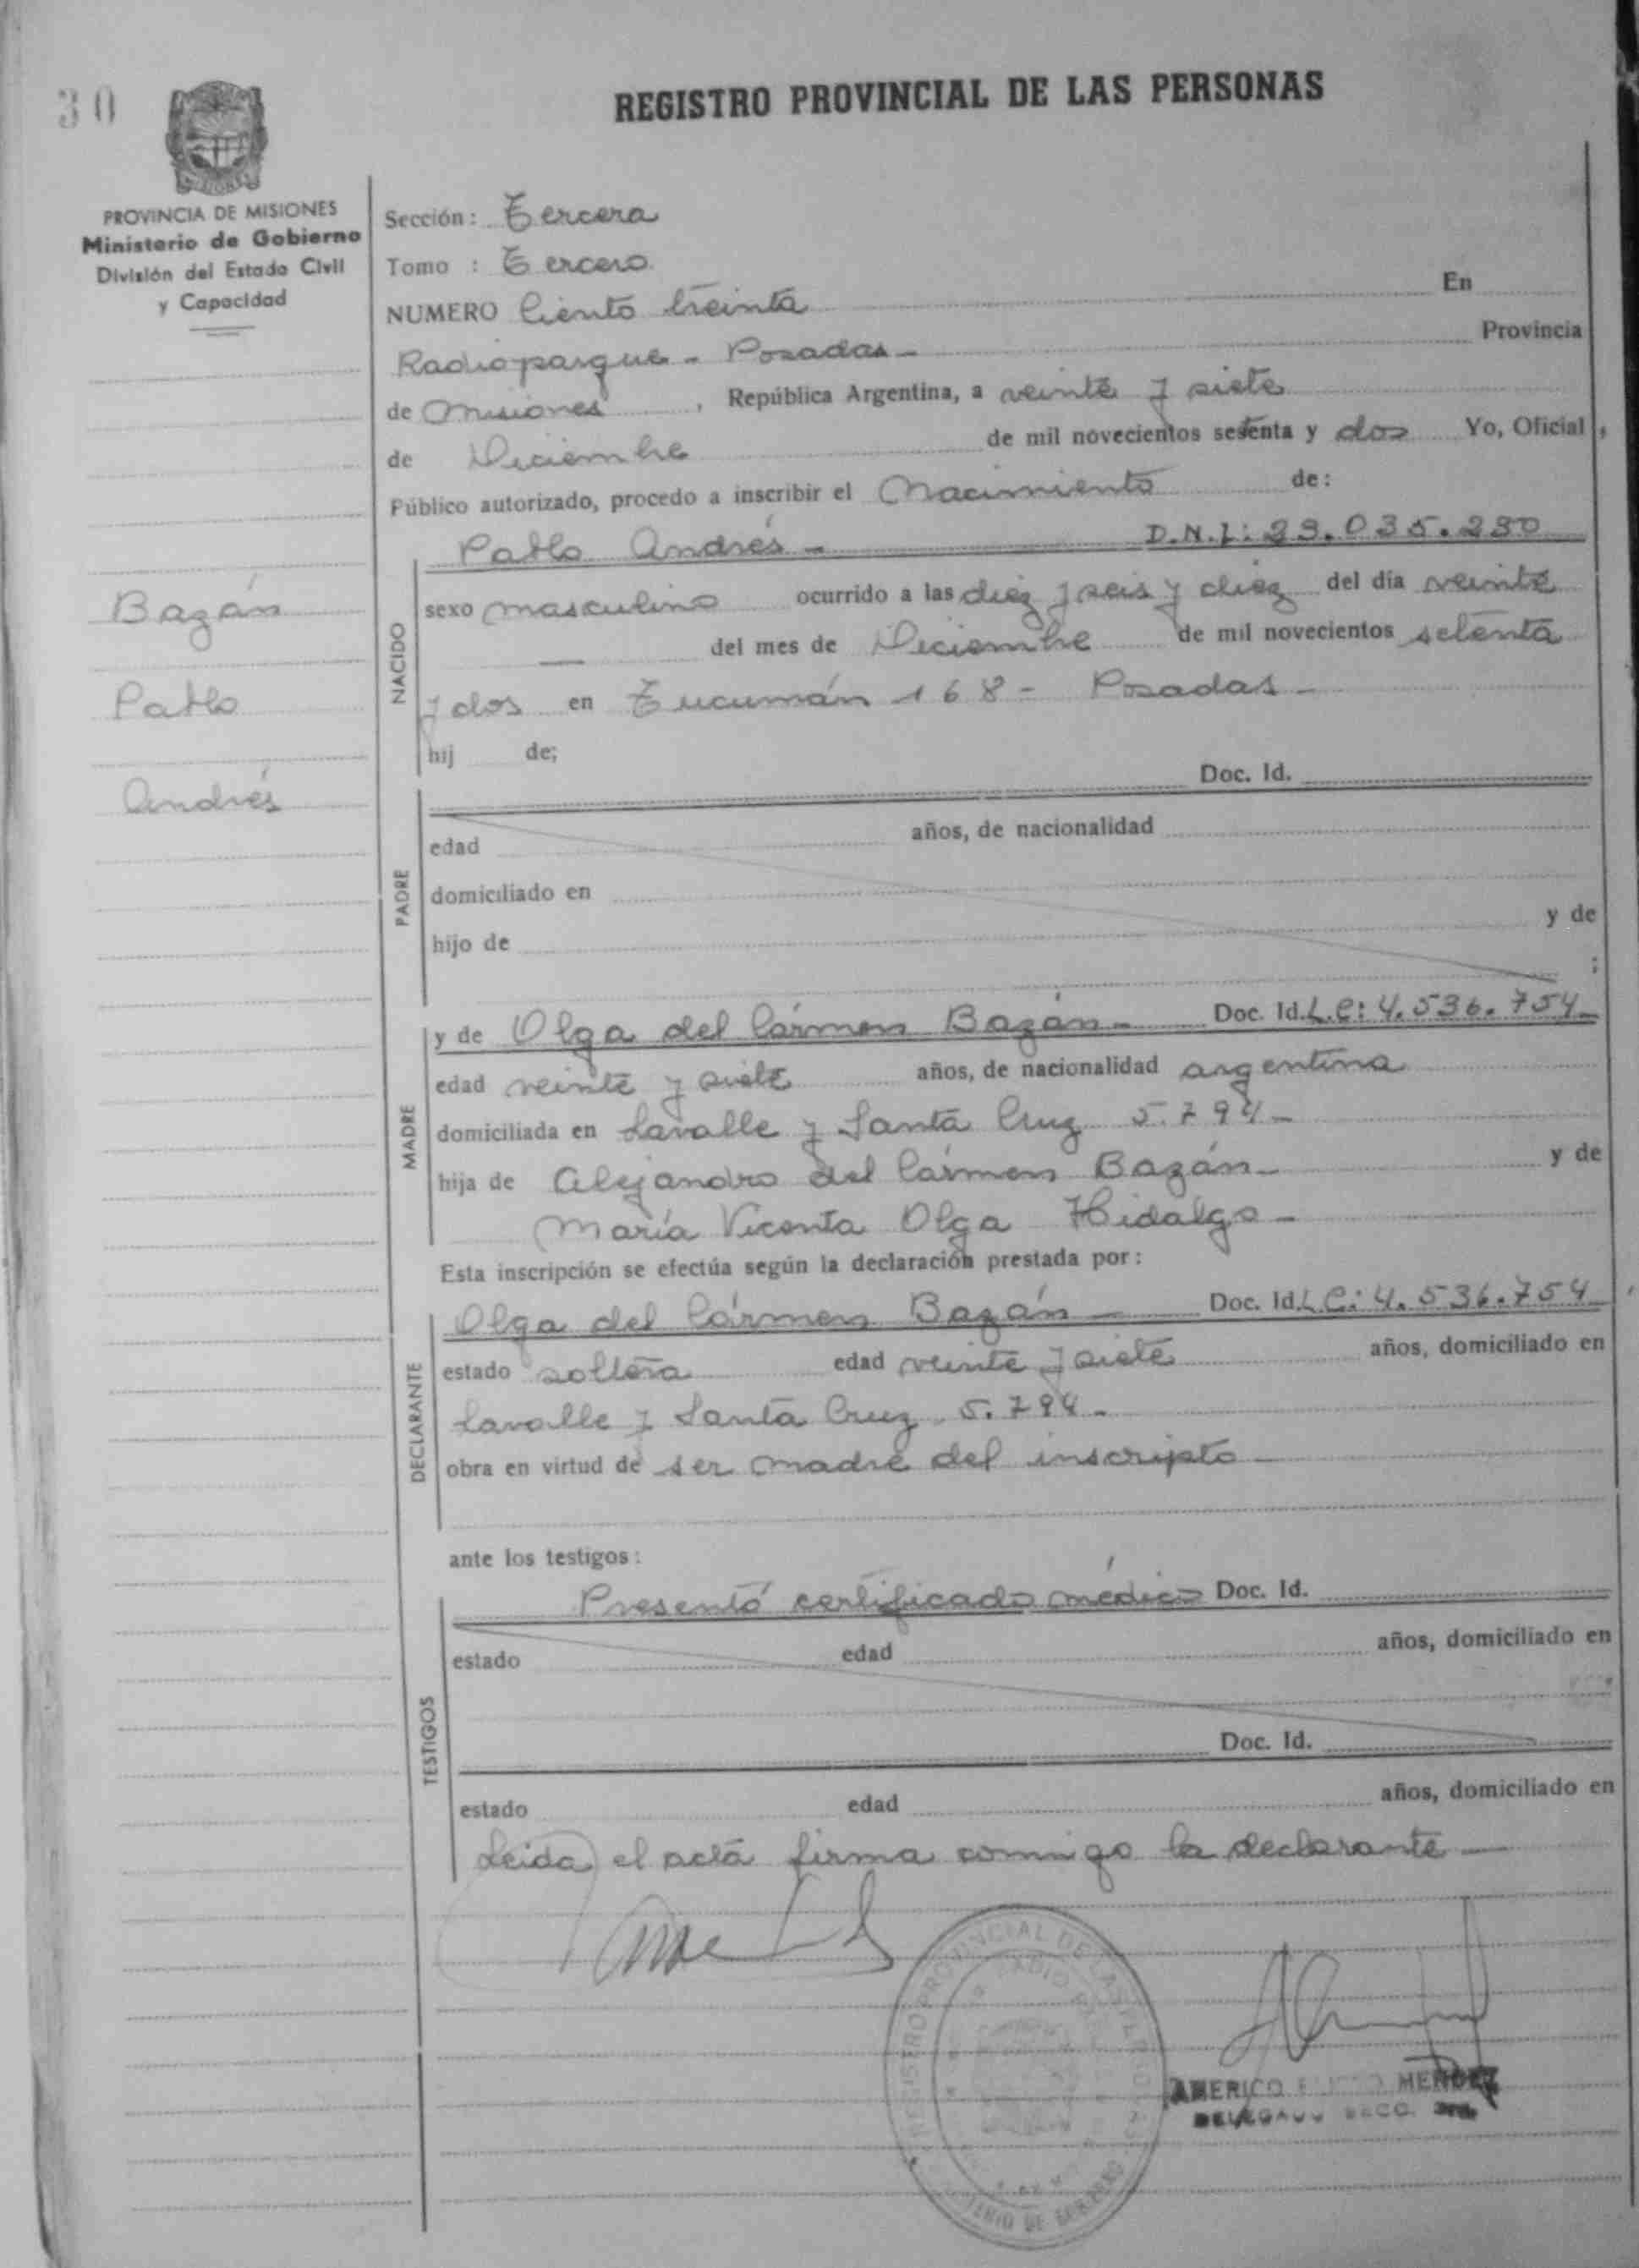 30
REGISTRO PROVINCIAL DE LAS PERSONAS
PROVINCIA DE MISIONES
Ministerio de Gobierno
División del Estado Civil
y Capacidad
Bazán
Pablo
Andrés
Sección: Tercera
Tomo : Tercero
NUMERO Ciento treinta En
Radioparque - Posadas - Provincia
de Misiones, República Argentina, a veinte y siete
de Diciembre de mil novecientos setenta y dos Yo, Oficial
Público autorizado, procedo a inscribir el Nacimiento de:
Pablo Andrés - D.N.I: 23.035.230
NACIDO
sexo masculino ocurrido a las diez y seis y diez del día veinte
— del mes de Diciembre de mil novecientos setenta
y dos en Tucumán 168 - Posadas -
hij de;
Doc. Id.
PADRE
edad años, de nacionalidad
domiciliado en
hijo de y de
:
MADRE
y de Olga del Cármen Bazán - Doc. Id. L.C: 4.536.754
edad veinte y siete años, de nacionalidad argentina
domiciliada en Lavalle y Santa Cruz 5.794 -
hija de Alejandro del Cármen Bazán - y de
María Vicenta Olga Hidalgo -
Esta inscripción se efectúa según la declaración prestada por:
DECLARANTE
Olga del Cármen Bazán - Doc. Id. L.C: 4.536.754
estado soltera edad veinte y siete años, domiciliado en
Lavalle y Santa Cruz 5.794 -
obra en virtud de ser madre del inscripto
ante los testigos:
TESTIGOS
Presentó certificado médico Doc. Id.
estado edad años, domiciliado en
Doc. Id.
estado edad años, domiciliado en
Leida el acta firma conmigo la declarante
REGISTRO PROVINCIAL DE LAS PERSONAS
AMERICO MENDEZ
DELEGADO SECC. 3ra.